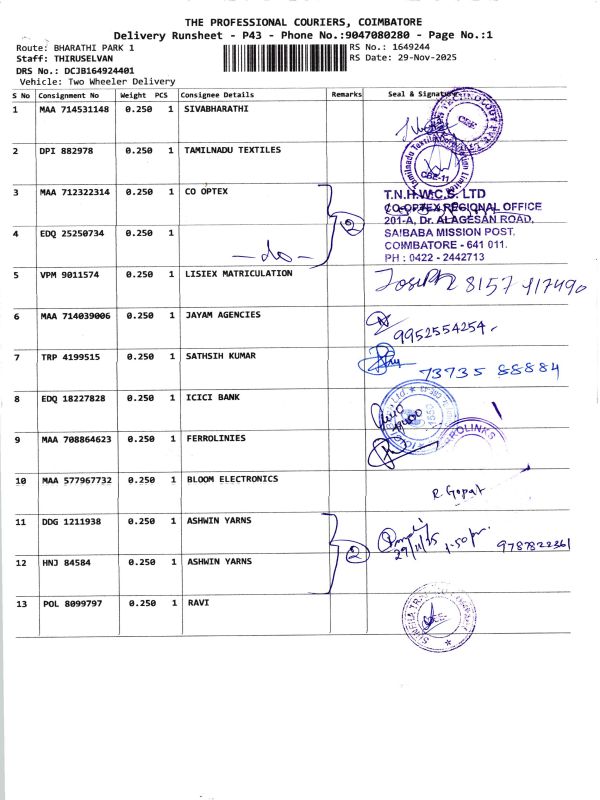 THE PROFESSIONAL COURIERS, COIMBATORE
Delivery Runsheet - P43 - Phone No.:9047080280 - Page No.:1
Route: BHARATHI PARK 1 RS No.: 1649244
Staff: THIRUSELVAN RS Date: 29-Nov-2025
DRS No.: DCJB164924401
Vehicle: Two Wheeler Delivery
S No Consignment No Weight PCS Consignee Details Remarks Seal & Signature
1 MAA 714531148 0.250 1 SIVABHARATHI
CBE
2 DPI 882978 0.250 1 TAMILNADU TEXTILES
CBE-11
3 MAA 712322314 0.250 1 CO OPTEX 2
T.N.H.W.C.S. LTD
CO-OPTEX REGIONAL OFFICE
201-A, Dr. ALAGESAN ROAD,
SAIBABA MISSION POST.
COIMBATORE - 641 011.
PH : 0422 - 2442713
4 EDQ 25250734 0.250 1
-do-
5 VPM 9011574 0.250 1 LISIEX MATRICULATION
Joseph 8157 917490
6 MAA 714039006 0.250 1 JAYAM AGENCIES
9952554254
7 TRP 4199515 0.250 1 SATHSIH KUMAR
73735 88884
8 EDQ 18227828 0.250 1 ICICI BANK
9 MAA 708864623 0.250 1 FERROLINIES
ROLINKS
10 MAA 577967732 0.250 1 BLOOM ELECTRONICS
R. Gopal
11 DDG 1211938 0.250 1 ASHWIN YARNS 2
29/11/25 1.50 pm. 9787822361
12 HNJ 84584 0.250 1 ASHWIN YARNS
13 POL 8099797 0.250 1 RAVI